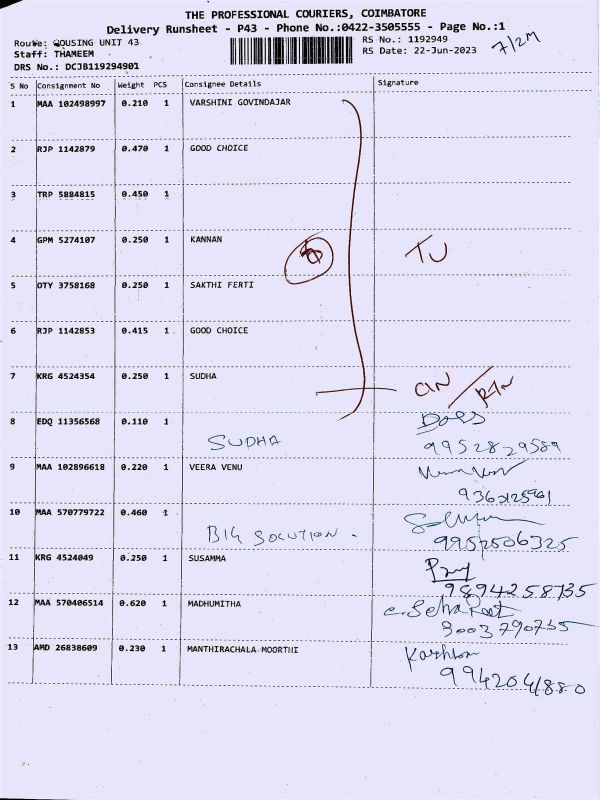 THE PROFESSIONAL COURIERS, COIMBATORE
Delivery Runsheet - P43 - Phone No.:0422-3505555 - Page No.:1
Route: HOUSING UNIT 43
RS No.: 1192949
Staff: THAMEEM
RS Date: 22-Jun-2023
7/2M
DRS No.: DCJB119294901
S No Consignment No Weight PCS Consignee Details Signature
1 MAA 102498997 0.210 1 VARSHINI GOVINDAJAR
2 RJP 1142879 0.470 1 GOOD CHOICE
3 TRP 5884815 0.450 1
4 GPM 5274107 0.250 1 KANNAN
TU
5 OTY 3758168 0.250 1 SAKTHI FERTI
6 RJP 1142853 0.415 1 GOOD CHOICE
7 KRG 4524354 0.250 1 SUDHA
8 EDQ 11356568 0.110 1
SUDHA
9952829589
9 MAA 102896618 0.220 1 VEERA VENU
10 MAA 570779722 0.460 1
BIG SOLUTION.
9952506325
11 KRG 4524049 0.250 1 SUSAMMA
9894258735
12 MAA 570406514 0.620 1 MADHUMITHA
9003790735
13 AMD 26838609 0.230 1 MANTHIRACHALA MOORTHI
9942041880